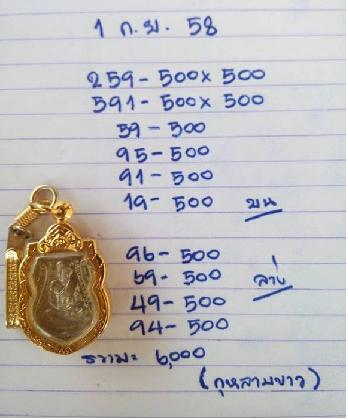 1 ก.ย. 58
259 - 500 x 500
591 - 500 x 500
59 - 500
95 - 500
91 - 500
19 - 500 บน
96 - 500
69 - 500 ล่าง
49 - 500
94 - 500
รวม= 6,000
(กุหลาบขาว)